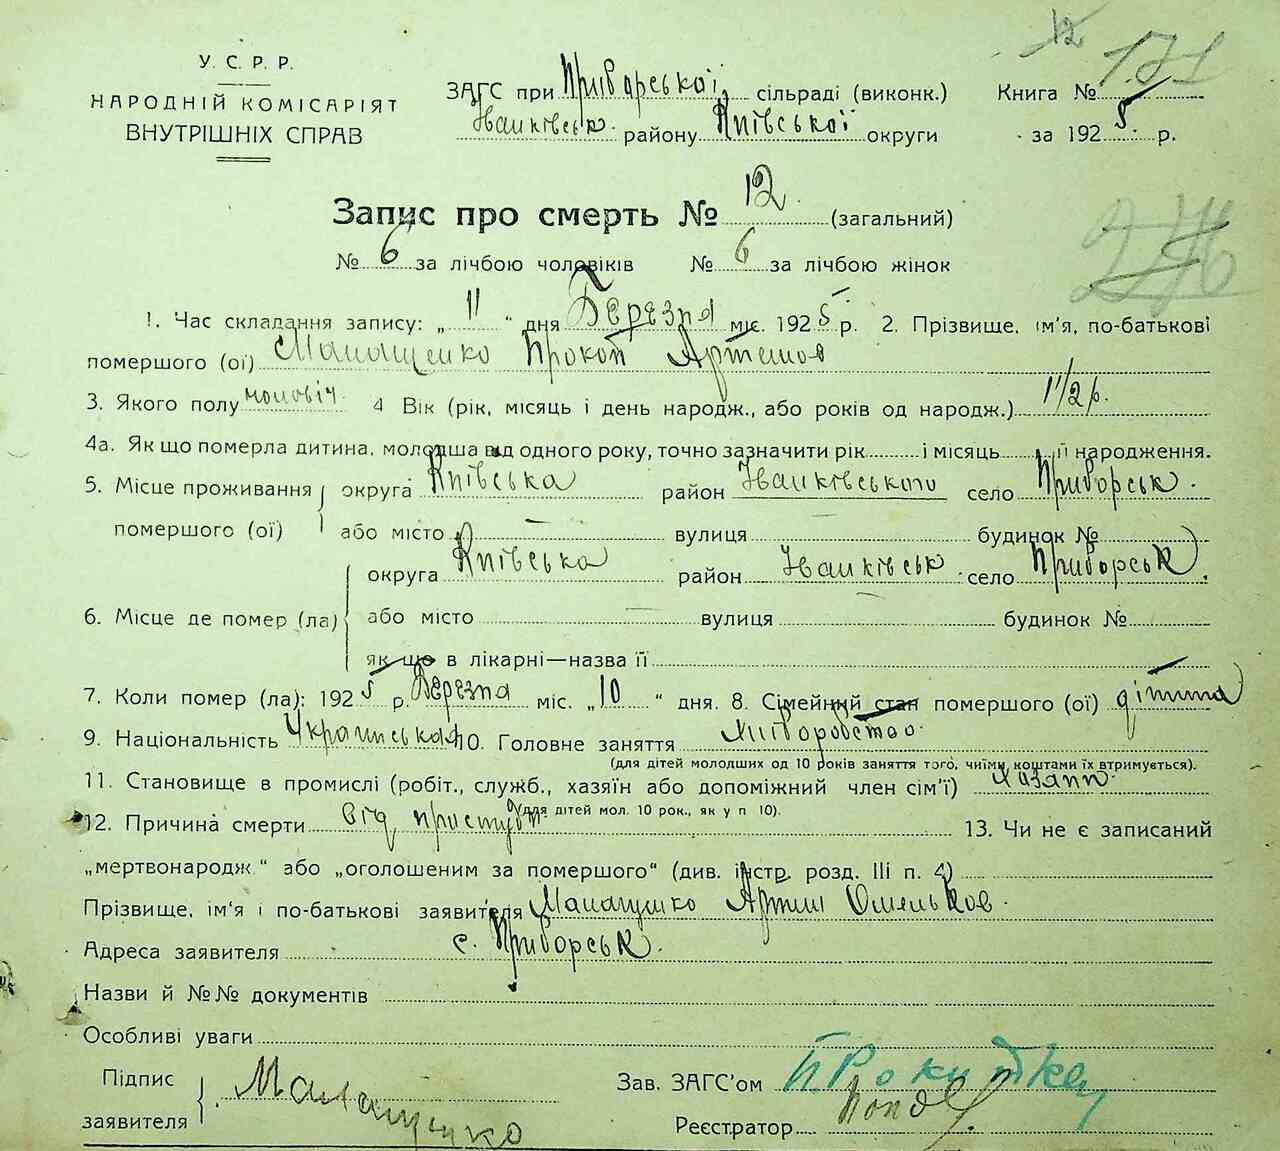 У. С. Р. Р.
НАРОДНІЙ КОМІСАРІЯТ
ВНУТРІШНІХ СПРАВ
ЗАГС при Приборської сільраді (виконк.)
Іванківськ. району Київської округи
12
Книга № 171
за 1925 р.
276
Запис про смерть № 12. (загальний)
№ 6 за лічбою чоловіків № 6 за лічбою жінок
1. Час складання запису: „ 11 “ дня Березня міс. 1925 р. 2. Прізвище, ім'я, по-батькові
помершого (ої) Прокоп Артемов
3. Якого полу чоловіч 4 Вік (рік, місяць і день народж., або років од народж.) 1 1/2 р.
4а. Як що померла дитина, молодша від одного року, точно зазначити рік і місяць її народження.
5. Місце проживання округа Київська район Іванківського село Приборськ.
помершого (ої) або місто вулиця будинок №
округа Київська район Іванківськ село Приборськ.
6. Місце де помер (ла) або місто вулиця будинок №
як що в лікарні—назва її
7. Коли помер (ла): 1925 р. Березня міс. „ 10 “ дня. 8. Сімейний стан помершого (ої) дітина
9. Національність Українська 10. Головне заняття Хліборобство.
(для дітей молодших од 10 років заняття того, чиїми коштами їх втримується).
11. Становище в промислі (робіт., служб., хазяїн або допоміжний член сім'ї) Хазяин
(для дітей мол. 10 рок., як у п 10).
12. Причина смерти від простуди 13. Чи не є записаний
„мертвонародж.“ або „оголошеним за помершого“ (див. інстр. розд. III п. 4)
Прізвище, ім'я і по-батькові заявителя Артим
Адреса заявителя с. Приборськ.
Назви й №№ документів
Особливі уваги
Підпис
заявителя
Зав. ЗАГС'ом
Реєстратор